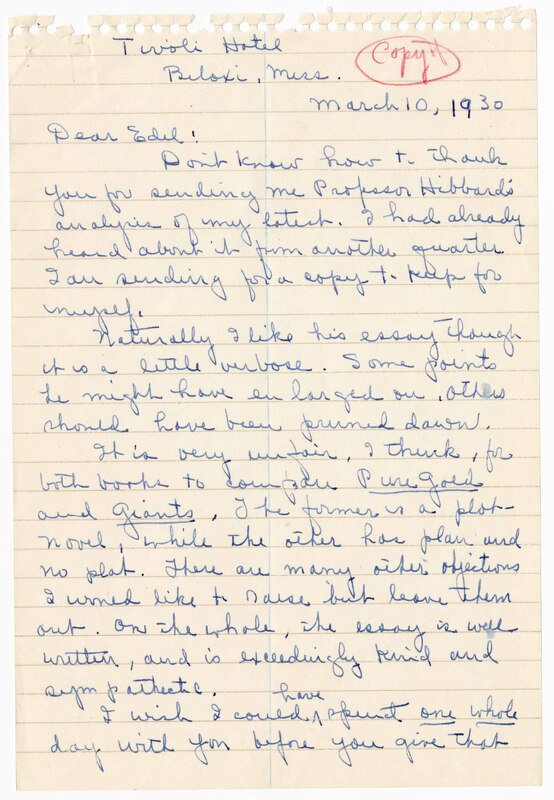 Tivoli Hotel
Biloxi, Miss.
Copy
March 10, 1930
Dear Edel!
Don't know how to thank
you for sending me Professor Hibbard's
analysis of my latest. I had already
heard about it from another quarter
I am sending for a copy to keep for
myself.
Naturally I like his essay though
it is a little verbose. Some points
he might have enlarged on, others
should have been pruned down.
It is very unfair, I think, for
both books to compare Pure Gold
and Giants. The former is a plot-
novel, while the other has plan and
no plot. There are many other objections
I would like to raise but leave them
out. On the whole, the essay is well
written, and is exceedingly kind and
sympathetic.
I wish I could have spent one whole
day with you before you give that